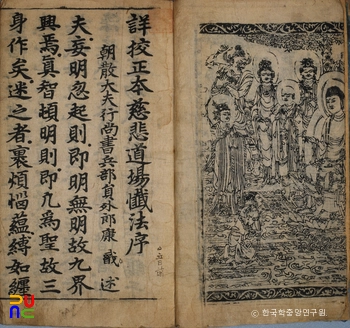 詳校正本慈悲道場懺法序
朝散大夫行尚書兵部員外郎康戩述
夫妄明忽起則即明無明故九界
興焉真智頓明則即凡為聖故三
身作矣迷之者裹煩惱蘊縛如纏
© 한국학중앙연구원